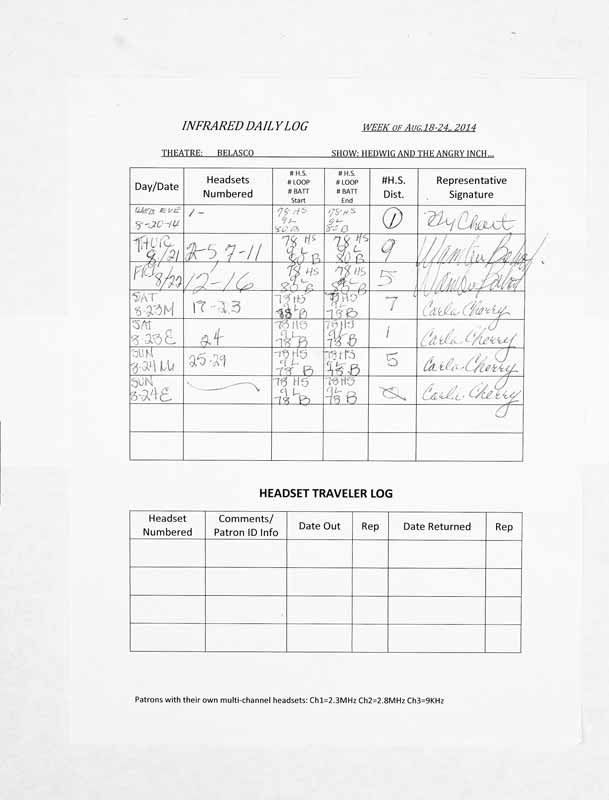 INFRARED DAILY LOG WEEK OF AUG.18-24, 2014
THEATRE: BELASCO SHOW: HEDWIG AND THE ANGRY INCH...
Day/Date Headsets Numbered # H.S. # LOOP # BATT Start # H.S. # LOOP # BATT End #H.S. Dist. Representative Signature
WED EVE 8-20-14 1- 78 HS 9L 80 B 78 HS 9L 80 B 1
THUR 8/21 2-5, 7-11 78 HS 9L 80 B 78 HS 9L 80 B 9
FRI 8/22 12-16 78 HS 9L 80 B 78 HS 9L 80 B 5
SAT 8-23M 17-23 78 HS 9L B 78 HS 9L 78 B 7 Carla Cherry
SAT 8-23E 24 78 HS 9L 78 B 78 HS 9L 78 B 1 Carla Cherry
SUN 8-24M 25-29 78 HS 9L 78 B 78 HS 9L 78 B 5 Carla Cherry
SUN 8-24E 78 HS 9L 78 B 78 HS 9L 78 B 0 Carla Cherry
HEADSET TRAVELER LOG
Headset Numbered Comments/ Patron ID Info Date Out Rep Date Returned Rep
Patrons with their own multi-channel headsets: Ch1=2.3MHz Ch2=2.8MHz Ch3=9KHz